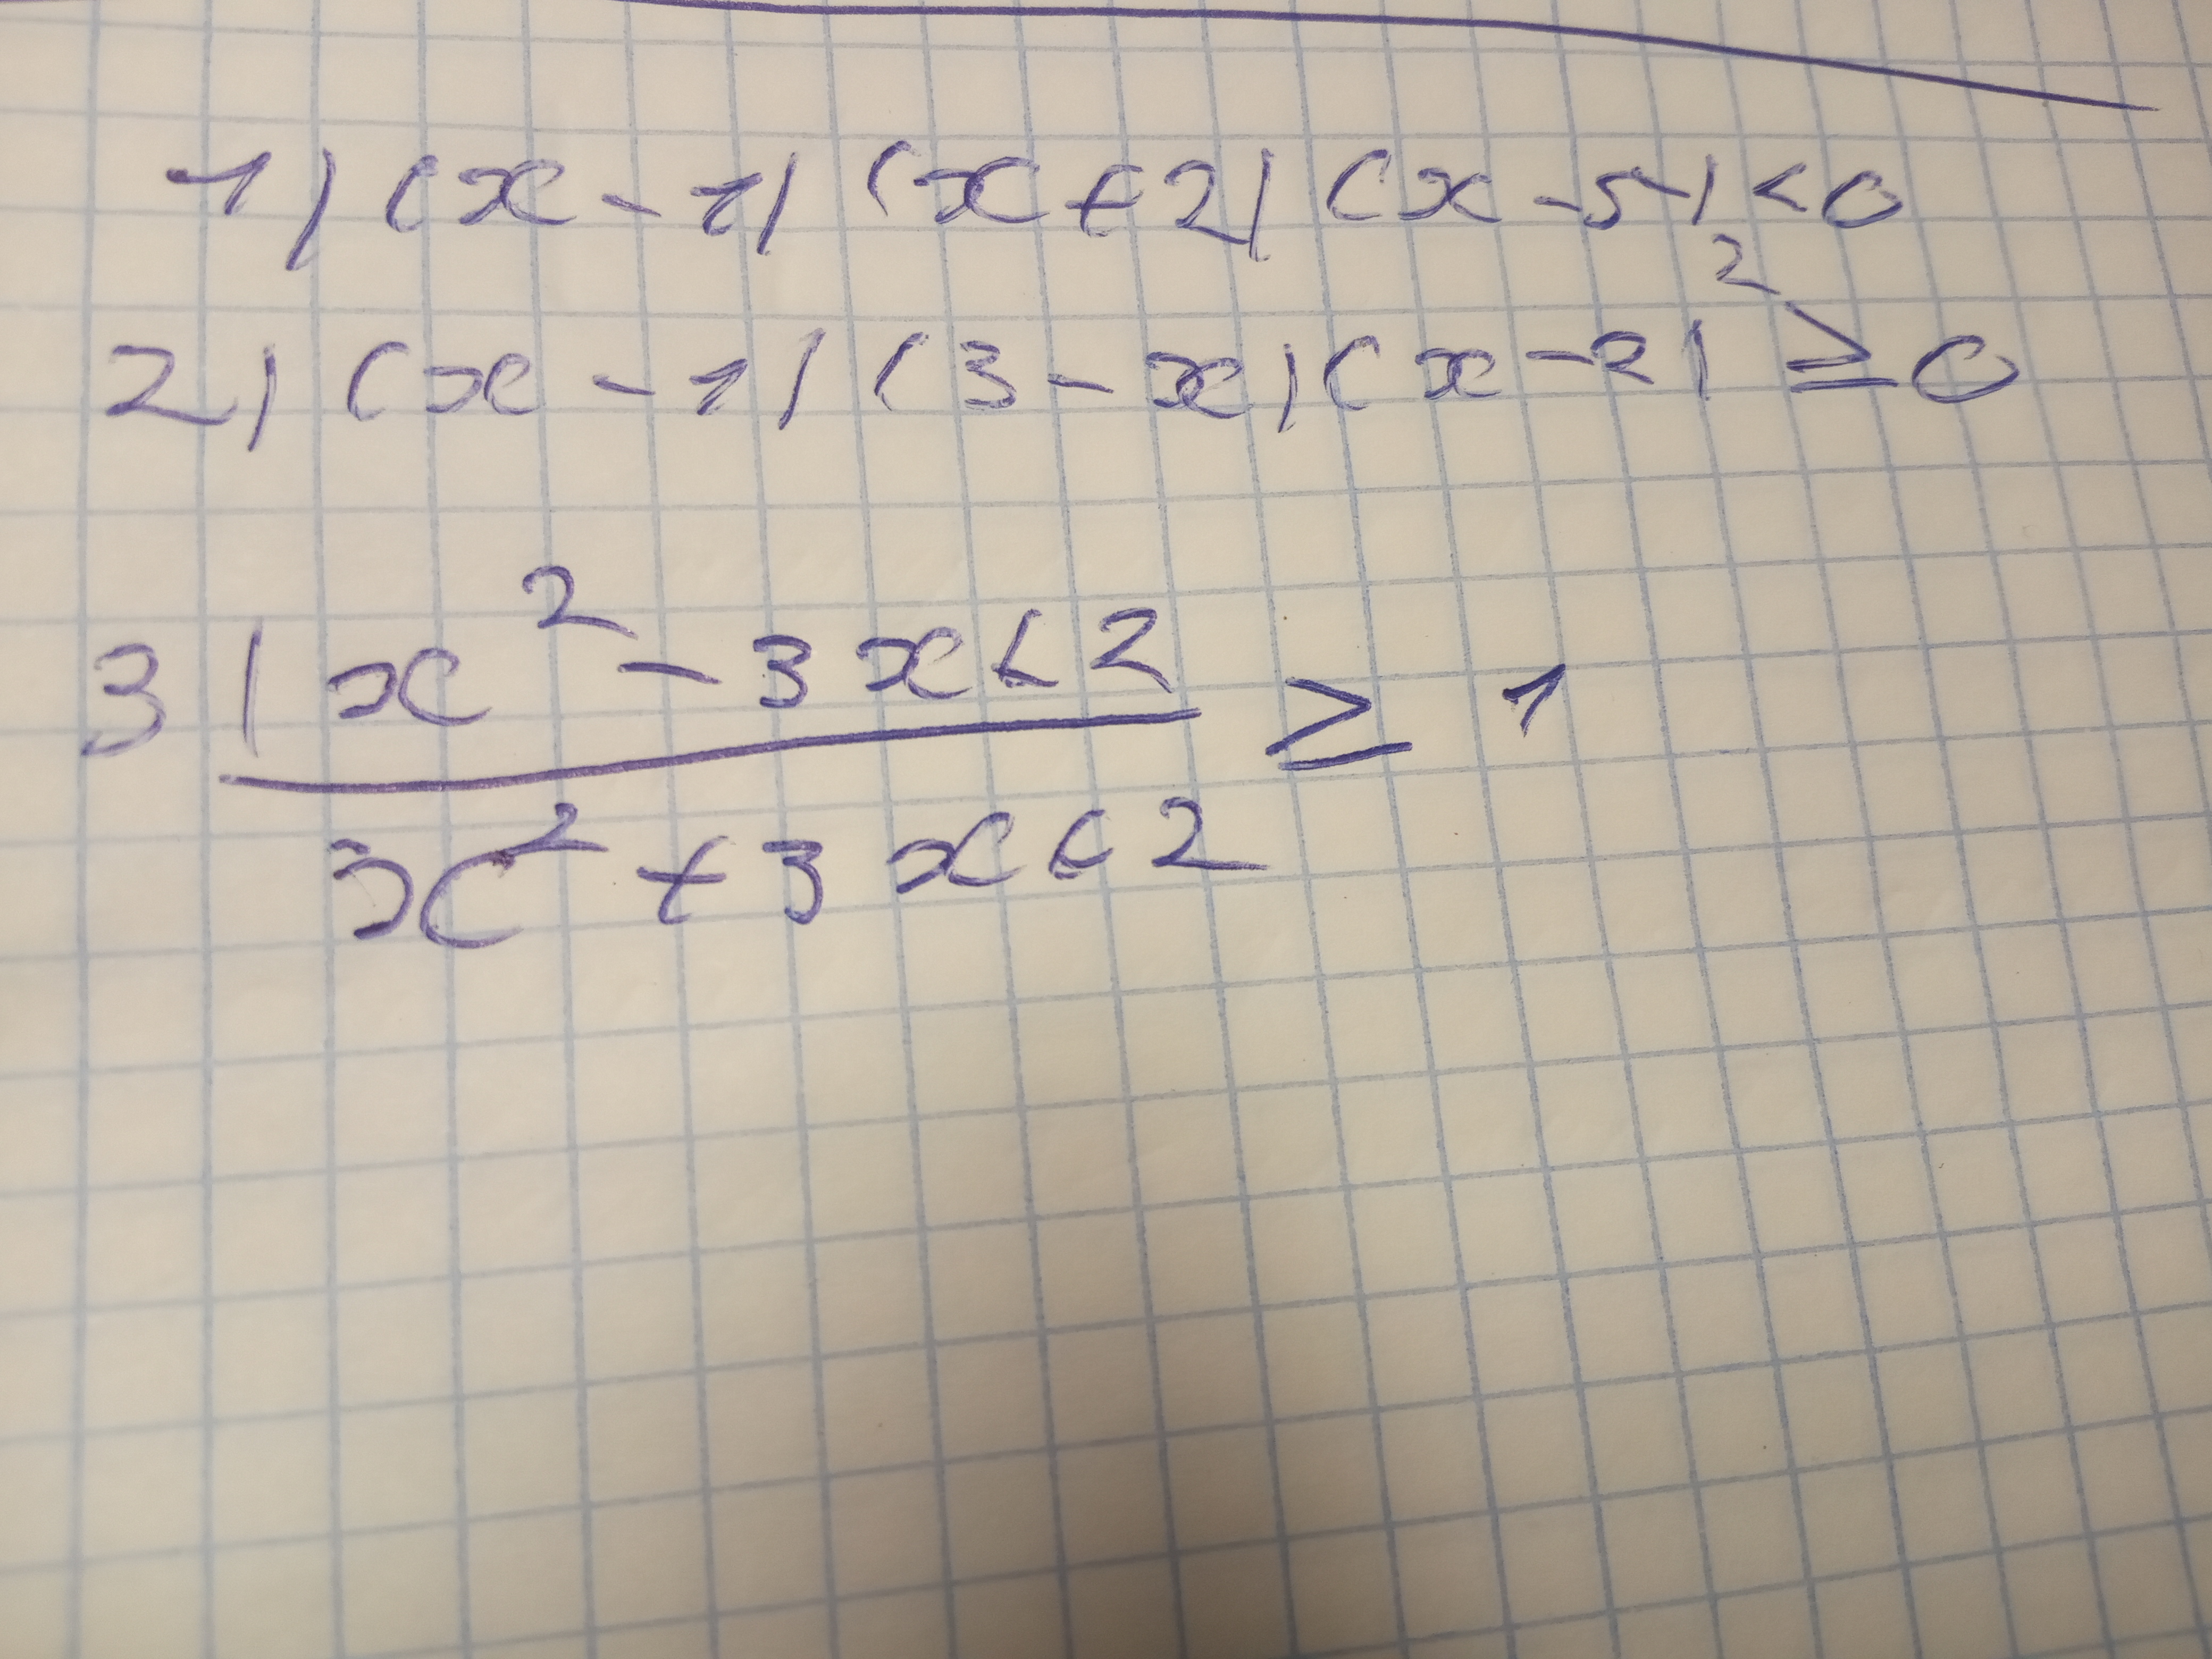 1) (x-1) (x+2) (x-5) <0
2) (x-1) (3-x)(x-2)² ≥0
3) x²-3x+2 / x²+3x+2 ≥ 1